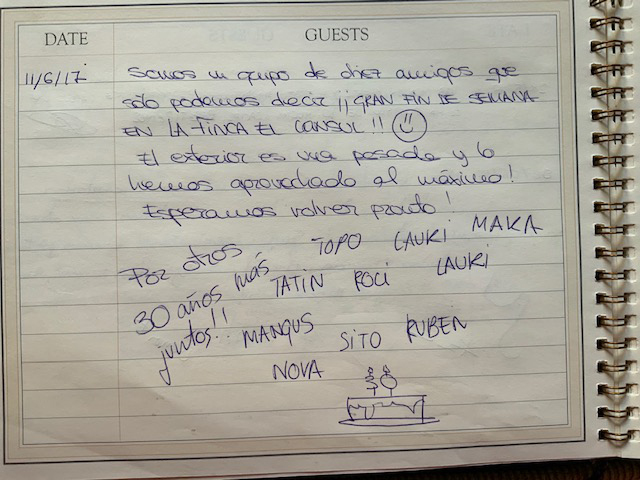 DATE
GUESTS
11/6/17
Somos un grupo de diez amigos que
sólo podemos decir ¡¡GRAN FIN DE SEMANA
EN LA FINCA EL CONSUL!!
El exterior es una pasada y lo
hemos aprovechado al máximo!
Esperamos volver pronto!
Por otros
30 años más
juntos!!
TOPO LAUKI MAKA
TATIN ROCI LAUKI
MANGUS SITO RUBÉN
NOVA